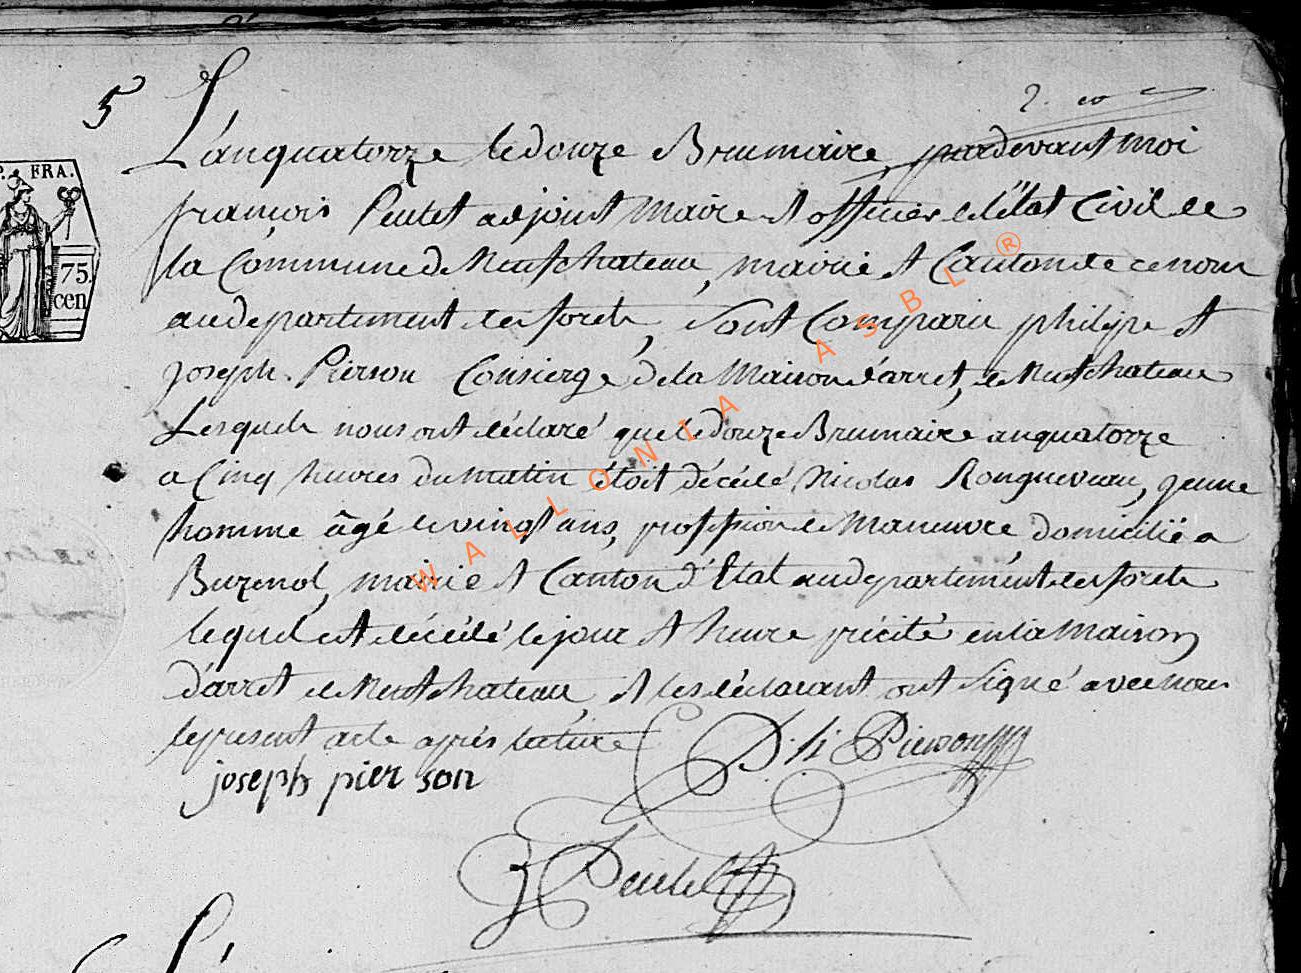 5
L'an quatorze le douze Brumaire, pardevant moi
françois Peutet adjoint Maire et officier de l'état Civil de
P. FRA.
la Commune de Neufchateau, mairie et Canton de ce nom
75.
cen
au departement des forets, sont Comparu philipe et
joseph Pierson Consierge de la Maison d'arret, de Neufchateau
Lesquels nous ont déclaré que le douze Brumaire an quatorze
a Cinq heures du Matin étoit décédé Nicolas Rongneveau, jeune
homme âgé de vingt ans, profession de Manœuvre domicilié a
Buzenol, mairie et Canton d'Etal au departement des forets
lequel est décédé le jour et heure précité en la Maison
d'arret de Neufchateau, et les déclarant ont signé avec nous
le present acte après lecture
joseph pier son
Ph Pierson
Peutet
WALLONIA ASBL ®